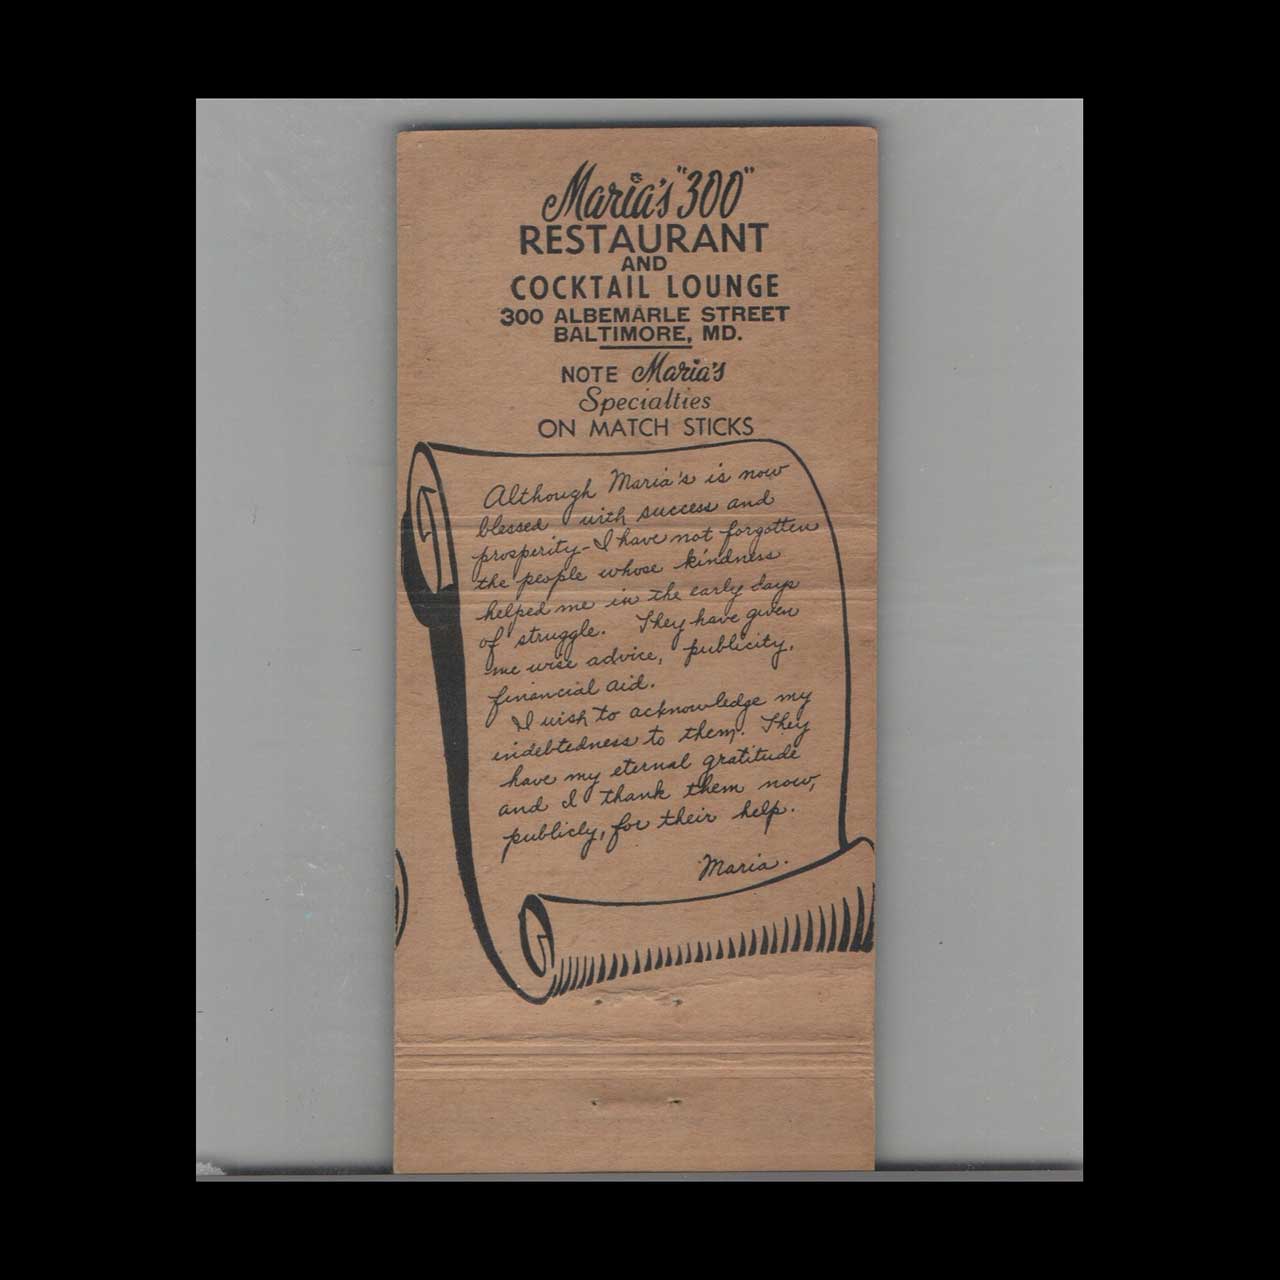 Maria's "300"
RESTAURANT
AND
COCKTAIL LOUNGE
300 ALBEMARLE STREET
BALTIMORE, MD.
NOTE Maria's
Specialties
ON MATCH STICKS
Although Maria's is now
blessed with success and
prosperity-I have not forgotten
the people whose kindness
helped me in the early days
of struggle. They have given
me wise advice, publicity,
financial aid.
I wish to acknowledge my
indebtedness to them. They
have my eternal gratitude
and I thank them now,
publicly, for their help.
Maria.